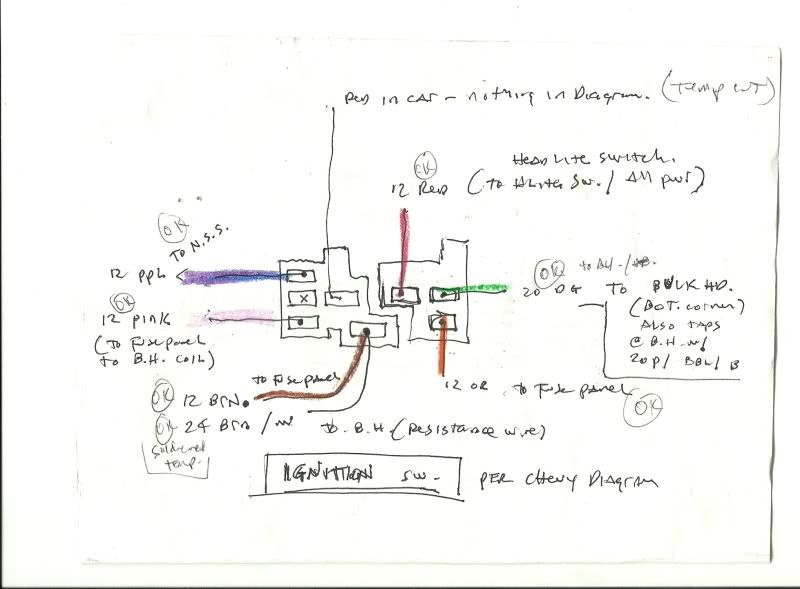 RED IN CAR - nothing in Diagram. (Temp cut)
OK
Headlite switch.
12 Red (To Hlites Sw. / All pwr)
OK
To N.S.S.
12 ppl
OK
12 pink
(To Fuse panel
To B.H. coil)
OK
20 DG To BULK HD.
(BOT. corner)
Also taps
@ B.H. w/
20 P /
12 OR. To Fuse panel
OK
To Fuse panel
OK 12 BRN.
OK 24 BRN / To B.H. (Resistance wire)
Soldered
temp.
IGNITION SW. PER CHEVY DIAGRAM